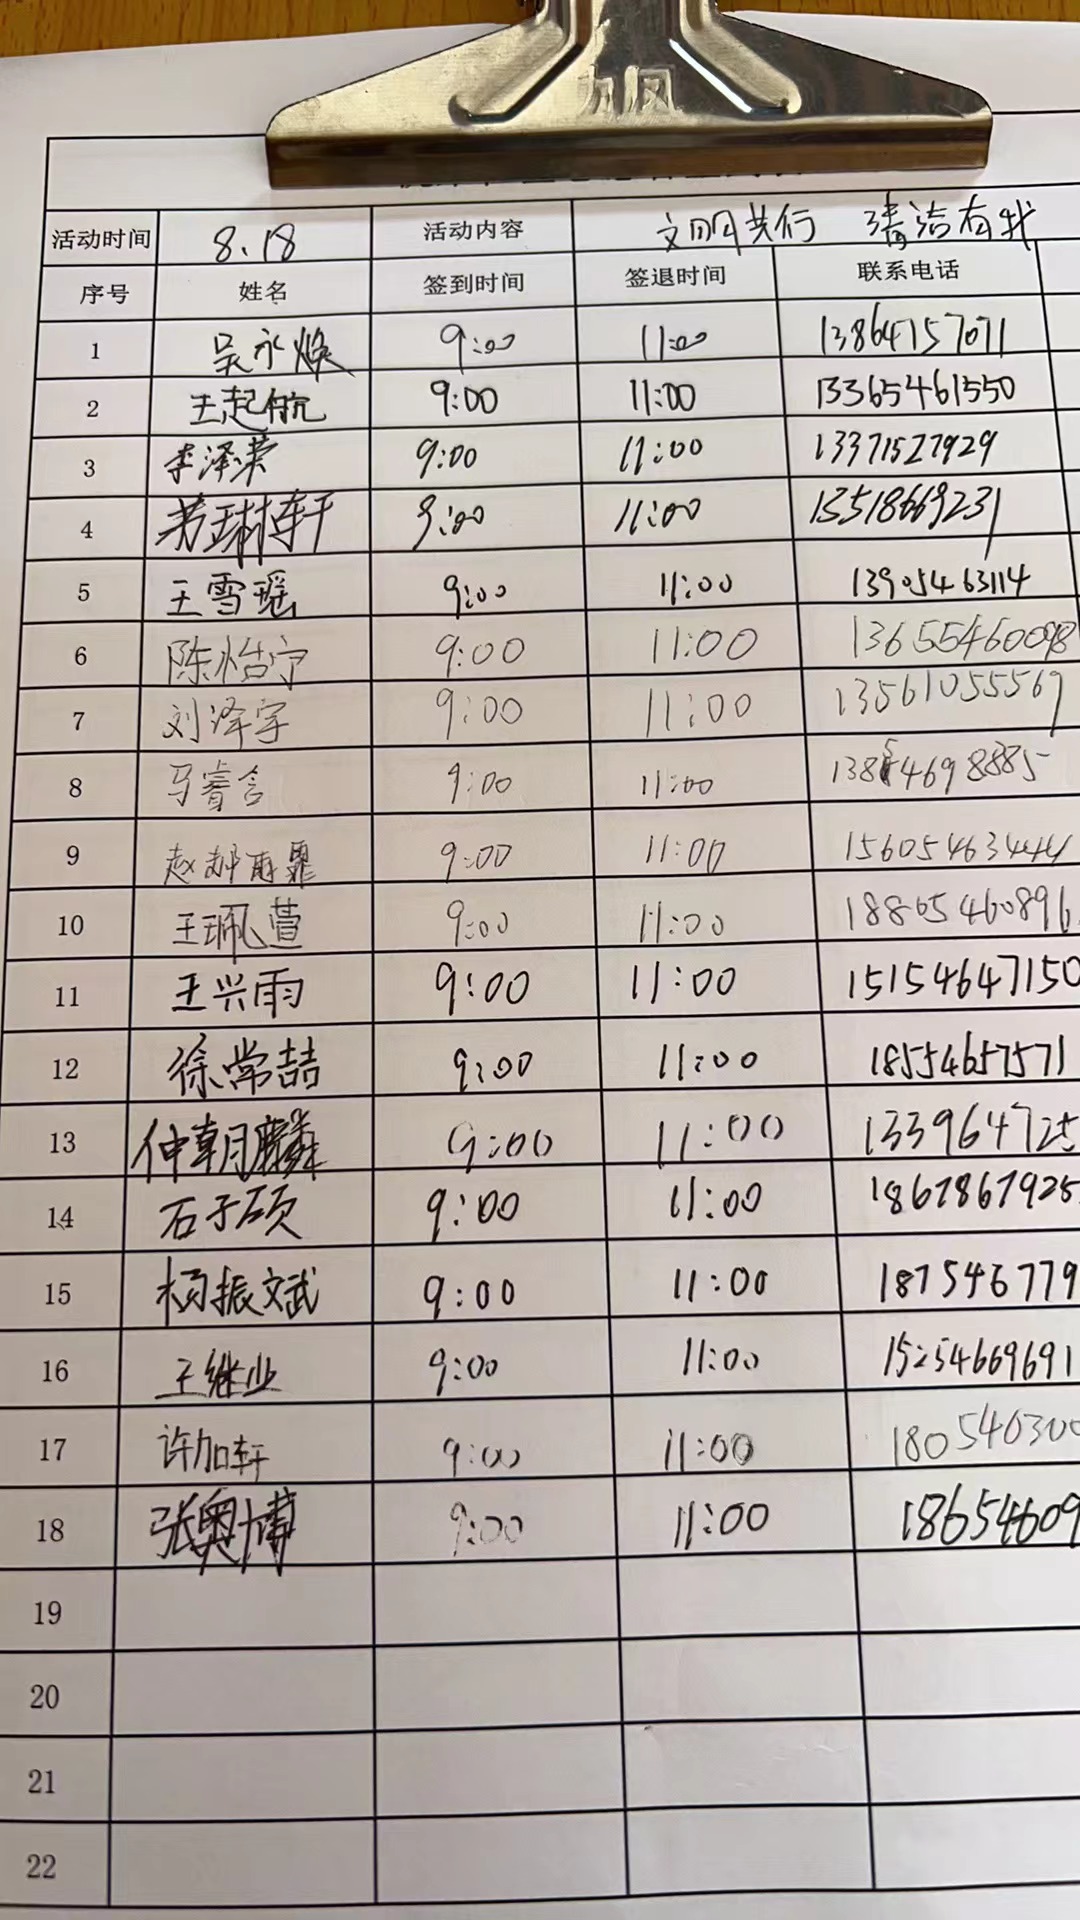 活动时间 8.18 活动内容 文明共行 清洁有我
序号 姓名 签到时间 签退时间 联系电话
1 吴永焕 9:00 11:00 13864757071
2 王起航 9:00 11:00 13365461550
3 李泽荣 9:00 11:00 13371527929
4 劳琳轩 9:00 11:00 13518669231
5 王雪瑶 9:00 11:00 13905463114
6 陈怡宁 9:00 11:00 13655460098
7 刘泽宇 9:00 11:00 13561055569
8 马睿含 9:00 11:00
9 赵郝雨霏 9:00 11:00 15605463444
10 王珮萱 9:00 11:00 18865460896
11 王兴雨 9:00 11:00 15154647150
12 徐常喆 9:00 11:00 18554657571
13 仲朝麟 9:00 11:00 133964725
14 石子硕 9:00 11:00 1867867925
15 杨振文斌 9:00 11:00 187546779
16 王继业 9:00 11:00 15254669691
17 许加轩 9:00 11:00 180546300
18 张奥博 9:00 11:00 18654609
19
20
21
22